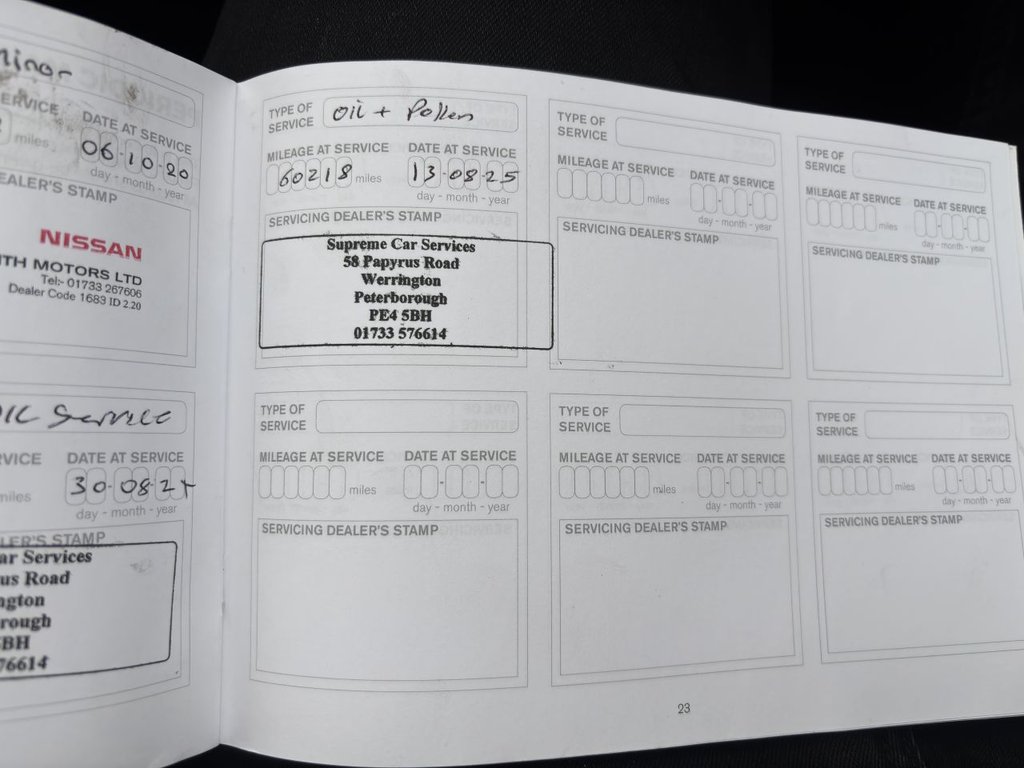 Minor
SERVICE
DATE AT SERVICE
miles
06-10-20
day - month - year
DEALER'S STAMP
NISSAN
ITH MOTORS LTD
Tel:- 01733 267606
Dealer Code 1683 ID 2.20
Oil Service
SERVICE
DATE AT SERVICE
miles
30-08-24
day - month - year
DEALER'S STAMP
ar Services
us Road
ngton
rough
5BH
76614
TYPE OF SERVICE
Oil + Pollen
MILEAGE AT SERVICE
DATE AT SERVICE
60218 miles
13-08-25
day - month - year
SERVICING DEALER'S STAMP
Supreme Car Services
58 Papyrus Road
Werrington
Peterborough
PE4 5BH
01733 576614
TYPE OF SERVICE
MILEAGE AT SERVICE
DATE AT SERVICE
miles
day - month - year
SERVICING DEALER'S STAMP
TYPE OF SERVICE
MILEAGE AT SERVICE
DATE AT SERVICE
miles
day - month - year
SERVICING DEALER'S STAMP
TYPE OF SERVICE
MILEAGE AT SERVICE
DATE AT SERVICE
miles
day - month - year
SERVICING DEALER'S STAMP
TYPE OF SERVICE
MILEAGE AT SERVICE
DATE AT SERVICE
miles
day - month - year
SERVICING DEALER'S STAMP
TYPE OF SERVICE
MILEAGE AT SERVICE
DATE AT SERVICE
miles
day - month - year
SERVICING DEALER'S STAMP
23